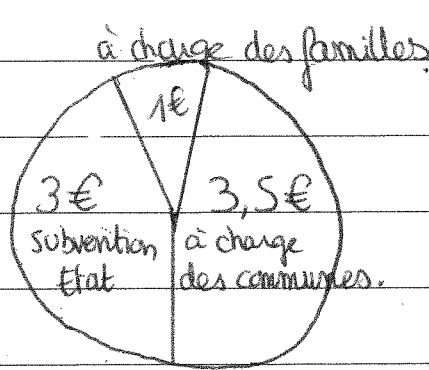 à charge des familles.
1€
3€
3,5€
subvention
Etat
à charge
des communes.